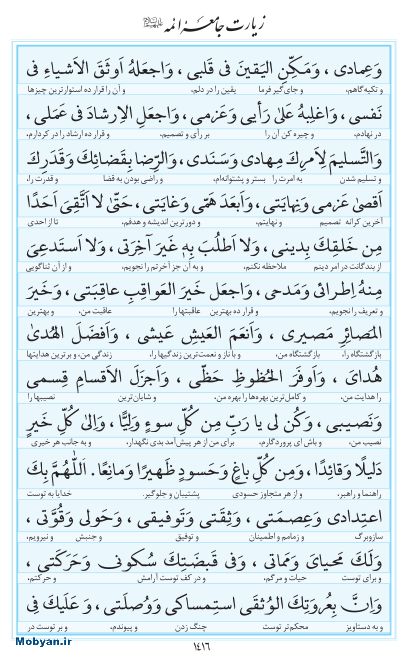 زیارت جامعهٔ ائمه علیهم‌السلام
وَعِمادی ، وَمَکِّنِ الیَقینَ فی قَلبی ، وَاجعَلهُ اَوثَقَ الاَشیاءِ فی
و تکیه گاهم، و جای گیر فرما یقین را در دلم، و آن را قرار ده استوارترین چیزها
نَفسی ، وَاغلِبهُ عَلیٰ رَأیی وَعَزمی ، وَاجعَلِ الاِرشادَ فی عَمَلی ،
در نهادم، و چیره کن آن را بر رأی و تصمیم. و قرار ده ارشاد را در کردارم،
وَالتَّسلیمَ لِاَمرِکَ مِهادی وَسَنَدی ، وَالرِّضا بِقَضائِکَ وَقَدَرِکَ
و تسلیم شدن به امرت را بستر و پشتوانه‌ام، و راضی بودن به قضا و قدرت را،
اَقصیٰ عَزمی وَنِهایَتی ، وَاَبعَدَ هَمّی وَغایَتی ، حَتّیٰ لا اَتَّقِیَ اَحَدًا
آخرین کرانه تصمیم و نهایتم، و دورترین اندیشه و هدفم، تا از احدی
مِن خَلقِکَ بِدینی ، وَلا اَطلُبَ بِهِ غَیرَ آخِرَتی ، وَلا اَستَدعِیَ
از بندگانت در امر دینم ملاحظه نکنم، و به آن جز آخرتم را نجویم، و از آن ثناگویی
مِنهُ اِطرائی وَمَدحی ، وَاجعَل خَیرَ العَواقِبِ عاقِبَتی ، وَخَیرَ
و تعریف را نجویم، و قرار ده بهترین عاقبتها را عاقبت من، و بهترین
المَصائِرِ مَصیری ، وَاَنعَمَ العَیشِ عَیشی ، وَاَفضَلَ الهُدیٰ
بازگشتگاه را، بازگشتگاه من، و با ناز و نعمت‌ترین زندگیها را، زندگی من، و برترین هدایتها
هُدایَ ، وَاَوفَرَ الحُظوظِ حَظّی ، وَاَجزَلَ الاَقسامِ قِسمی
را هدایت من، و کامل‌ترین بهره‌ها را بهره من، و شایان‌ترین نصیبها را
وَنَصیبی ، وَکُن لی یا رَبِّ مِن کُلِّ سوءٍ وَلِیًّا ، وَاِلیٰ کُلِّ خَیرٍ
نصیب من، و باش ای پروردگارم، برای من از هر پیش‌آمد بدی نگهدار، و به جانب هر خیری
دَلیلًا وَقائِدًا ، وَمِن کُلِّ باغٍ وَحَسودٍ ظَهیرًا وَمانِعًا. اَللّٰهُمَّ بِکَ
راهنما و راهبر، و از هر متجاوز حسودی پشتیبان و جلوگیر. خدایا به توست
اعتِدادی وَعِصمَتی ، وَثِقَتی وَتَوفیقی ، وَحَولی وَقُوَّتی ،
سازوبرگ و زمامم و اطمینان و توفیق و جنبش و نیرویم،
وَلَکَ مَحیایَ وَمَماتی ، وَفی قَبضَتِکَ سُکونی وَحَرَکَتی ،
و برای توست حیات و مرگم، و در کف توست آرامش و حرکتم،
وَاِنَّ بِعُروَتِکَ الوُثقَی استِمساکی وَوُصلَتی ، وَعَلَیکَ فِی
و به دستاویز محکم‌تر توست چنگ زدن و پیوندم، و بر توست در
۱۴۱۶
Mobyan.ir